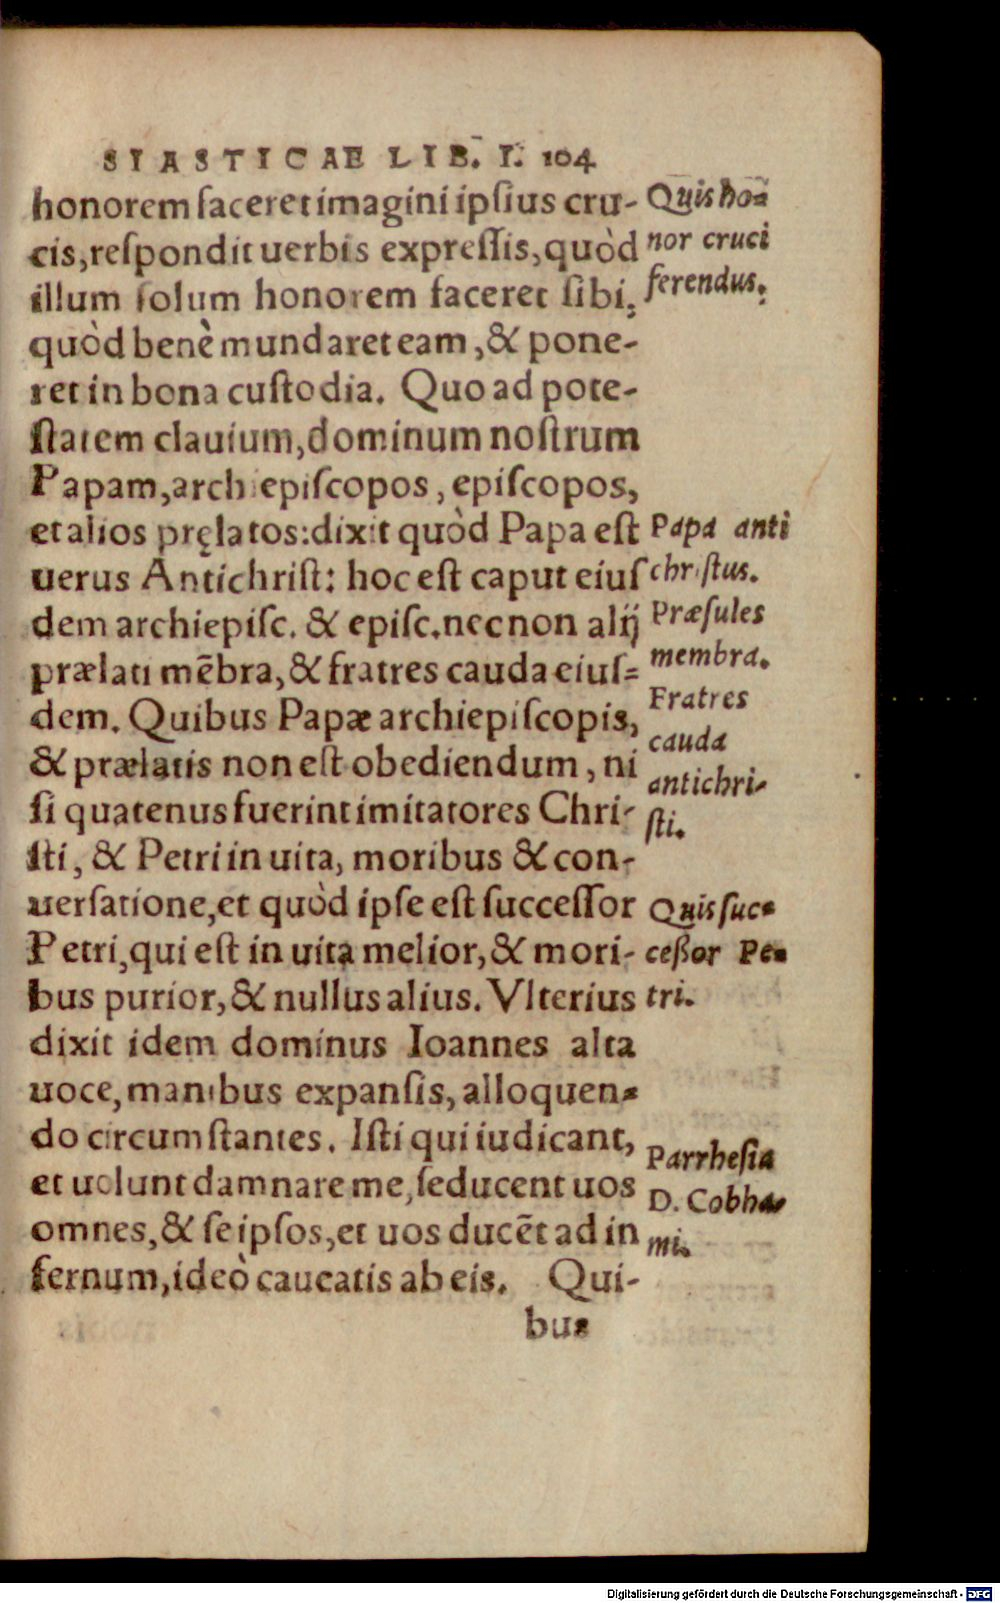 SIASTICAE LIB. I. 104
honorem faceret imagini ipsius cru-
cis, respondit uerbis expressis, quòd
illum solum honorem faceret sibi,
quòd benè mundaret eam, & pone-
ret in bona custodia. Quo ad pote-
statem clauium, dominum nostrum
Papam, archiepiscopos, episcopos,
et alios pręlatos: dixit quòd Papa est
uerus Antichrist: hoc est caput eius
dem archiepisc. & episc. necnon alij
prælati mēbra, & fratres cauda eius=
dem. Quibus Papæ archiepiscopis,
& prælatis non est obediendum, ni
si quatenus fuerint imitatores Chri-
sti, & Petri in uita, moribus & con-
uersatione, et quòd ipse est successor
Petri, qui est in uita melior, & mori-
bus purior, & nullus alius. Vlterius
dixit idem dominus Ioannes alta
uoce, manibus expansis, alloquen=
do circumstantes. Isti qui iudicant,
et uolunt damnare me, seducent uos
omnes, & se ipsos, et uos ducēt ad in
fernum, ideò caueatis ab eis. Qui-
bus
Quis ho=
nor cruci
ferendus.
Papa anti
christus.
Præsules
membra.
Fratres
cauda
antichri-
sti.
Quis suc=
ceßor Pe=
tri.
Parrhesia
D. Cobha=
mi.
Digitalisierung gefördert durch die Deutsche Forschungsgemeinschaft - DFG